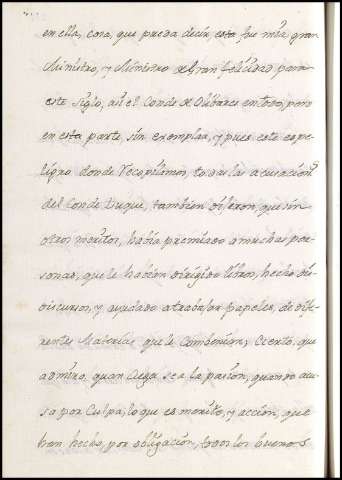 en ella, cosa, que pueda decir, esta fue mui gran
Ministro, y Ministro de Gran felicidad para
este Siglo, asi el Conde de Olibares en todo, pero
en esta parte sin exemplar, y pues este es pe-
ligro donde Recopilamos, todas las acusacions
del Conde Duque, tambien dijeron, que sin
otros meritos, habia premiado a muchas per-
sonas, que le habian dirigido libros, hecho di-
discursos, y ayudado a trabajar papeles, de dife-
rentes Materias que le Combenian; Cierto, que
admiro, quan Ciega sea la pasion, quando acu-
sa por Culpa, lo que es merito, y accion, que
han hecho, por obligacion, todos los buenos